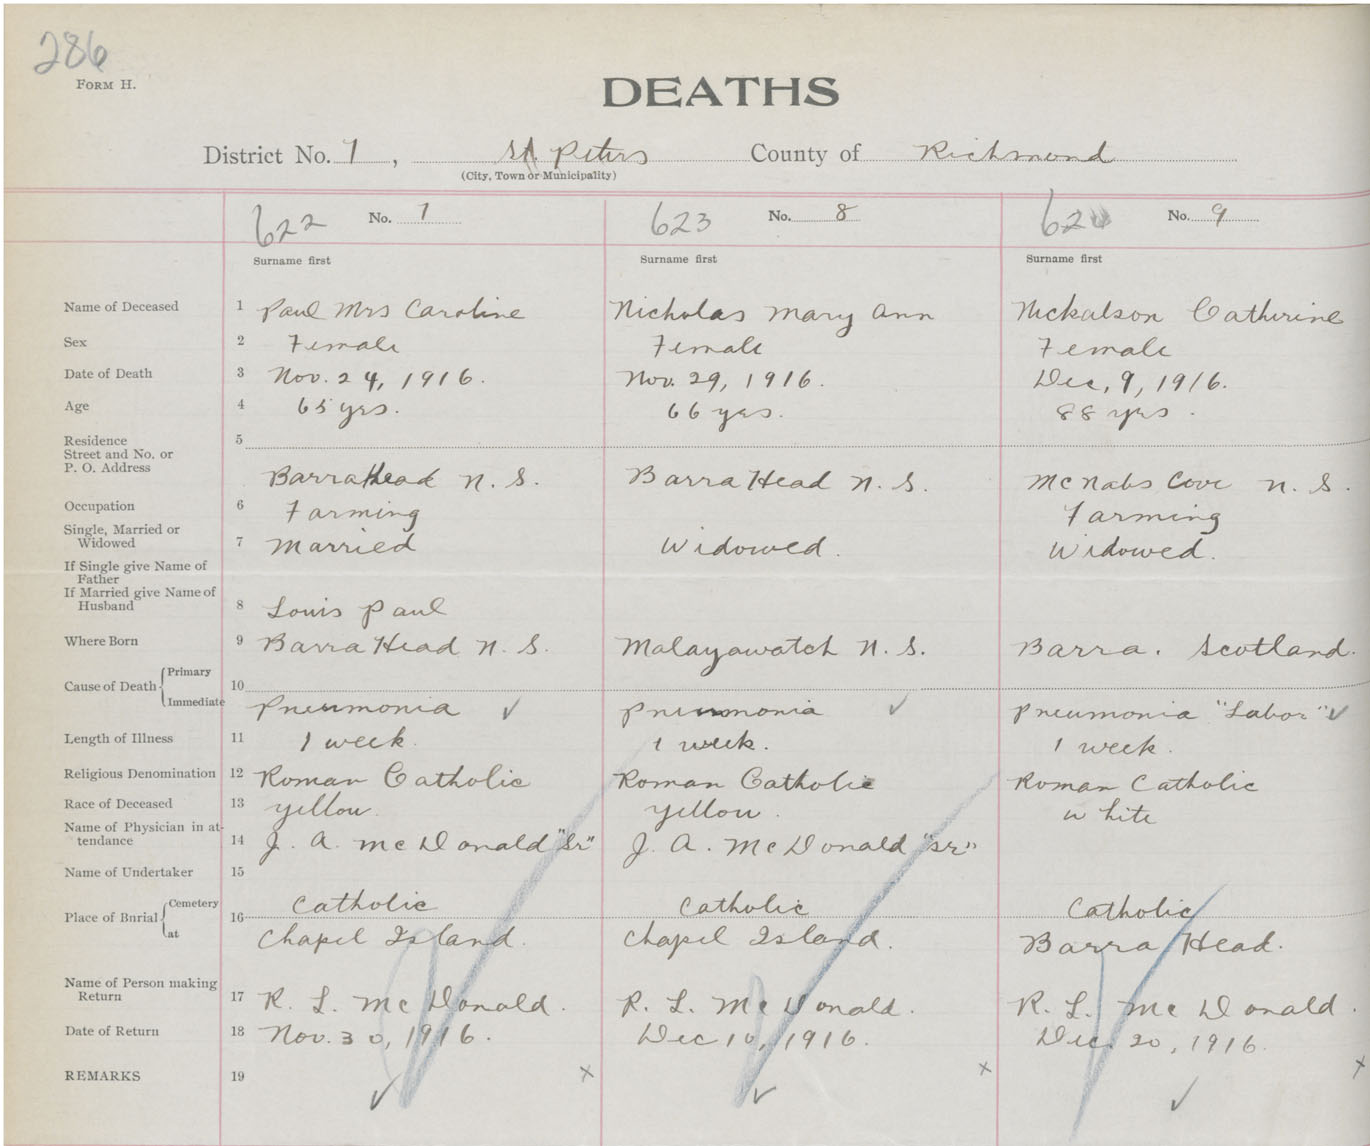 286
FORM H.
DEATHS
District No. 7, St. Peters County of Richmond
(City, Town or Municipality)
622 No. 7 623 No. 8 624 No. 9
Surname first Surname first Surname first
Name of Deceased 1 Paul Mrs Caroline Nicholas Mary Ann Nickalson Catherine
Sex 2 Female Female Female
Date of Death 3 Nov. 24, 1916. Nov. 29, 1916. Dec. 9, 1916.
Age 4 65 yrs. 66 yrs. 88 yrs.
Residence 5
Street and No. or
P. O. Address
Barra Head N. S. Barra Head N. S. McNabs Cove N. S.
Occupation 6 Farming Farming
Single, Married or
Widowed 7 Married Widowed. Widowed.
If Single give Name of
Father
If Married give Name of
Husband 8 Louis Paul
Where Born 9 Barra Head N. S. Malagawatch N. S. Barra. Scotland.
Cause of Death Primary 10
Immediate Pneumonia ✓ Pneumonia ✓ Pneumonia "Labor" ✓
Length of Illness 11 1 week. 1 week. 1 week.
Religious Denomination 12 Roman Catholic Roman Catholic Roman Catholic
Race of Deceased 13 yellow. yellow. white
Name of Physician in at-
tendance 14 J. A. McDonald "Sr" J. A. McDonald "Sr"
Name of Undertaker 15
Place of Burial Cemetery 16 Catholic Catholic Catholic
at Chapel Island. Chapel Island. Barra Head.
Name of Person making
Return 17 R. L. McDonald. R. L. McDonald. R. L. McDonald.
Date of Return 18 Nov. 30, 1916. Dec 10, 1916. Dec. 20, 1916.
REMARKS 19 x x x
✓ ✓ ✓